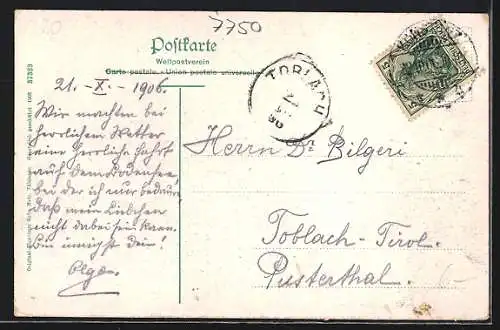 7750
Postkarte
Weltpostverein
Carte postale. - Union postale universelle
21. X. 1906.
Wir machten bei
herrlichem Wetter
eine herrliche Fahrt
auf dem Bodensee,
bei der ich nur bedaure,
daß mein Liebchen
nicht dabei sein kann.
dein!
Olga.
TOBLACH
Herrn Dr. Bilgeri
Toblach-Tirol.
Pusterthal.